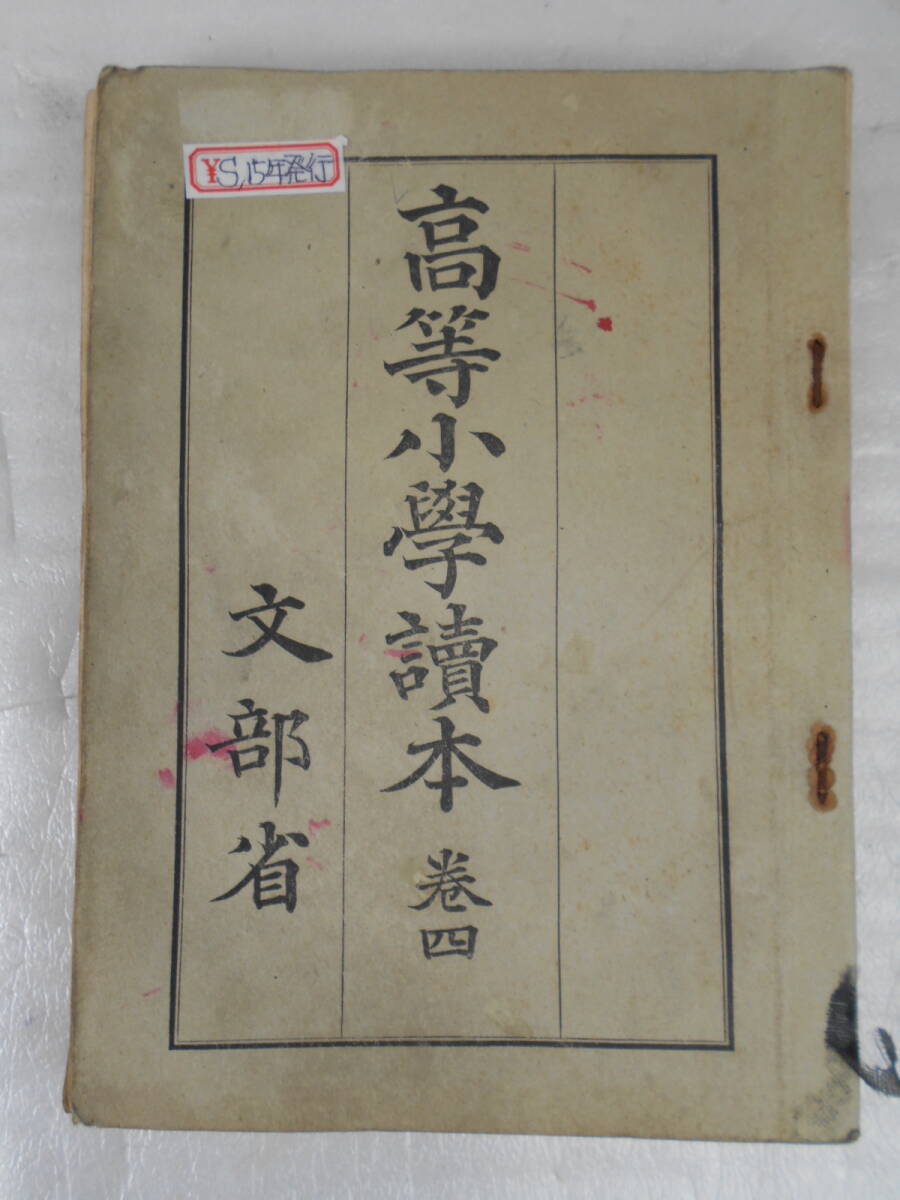 ¥S,15年発行
高等小學讀本 卷四
文部省